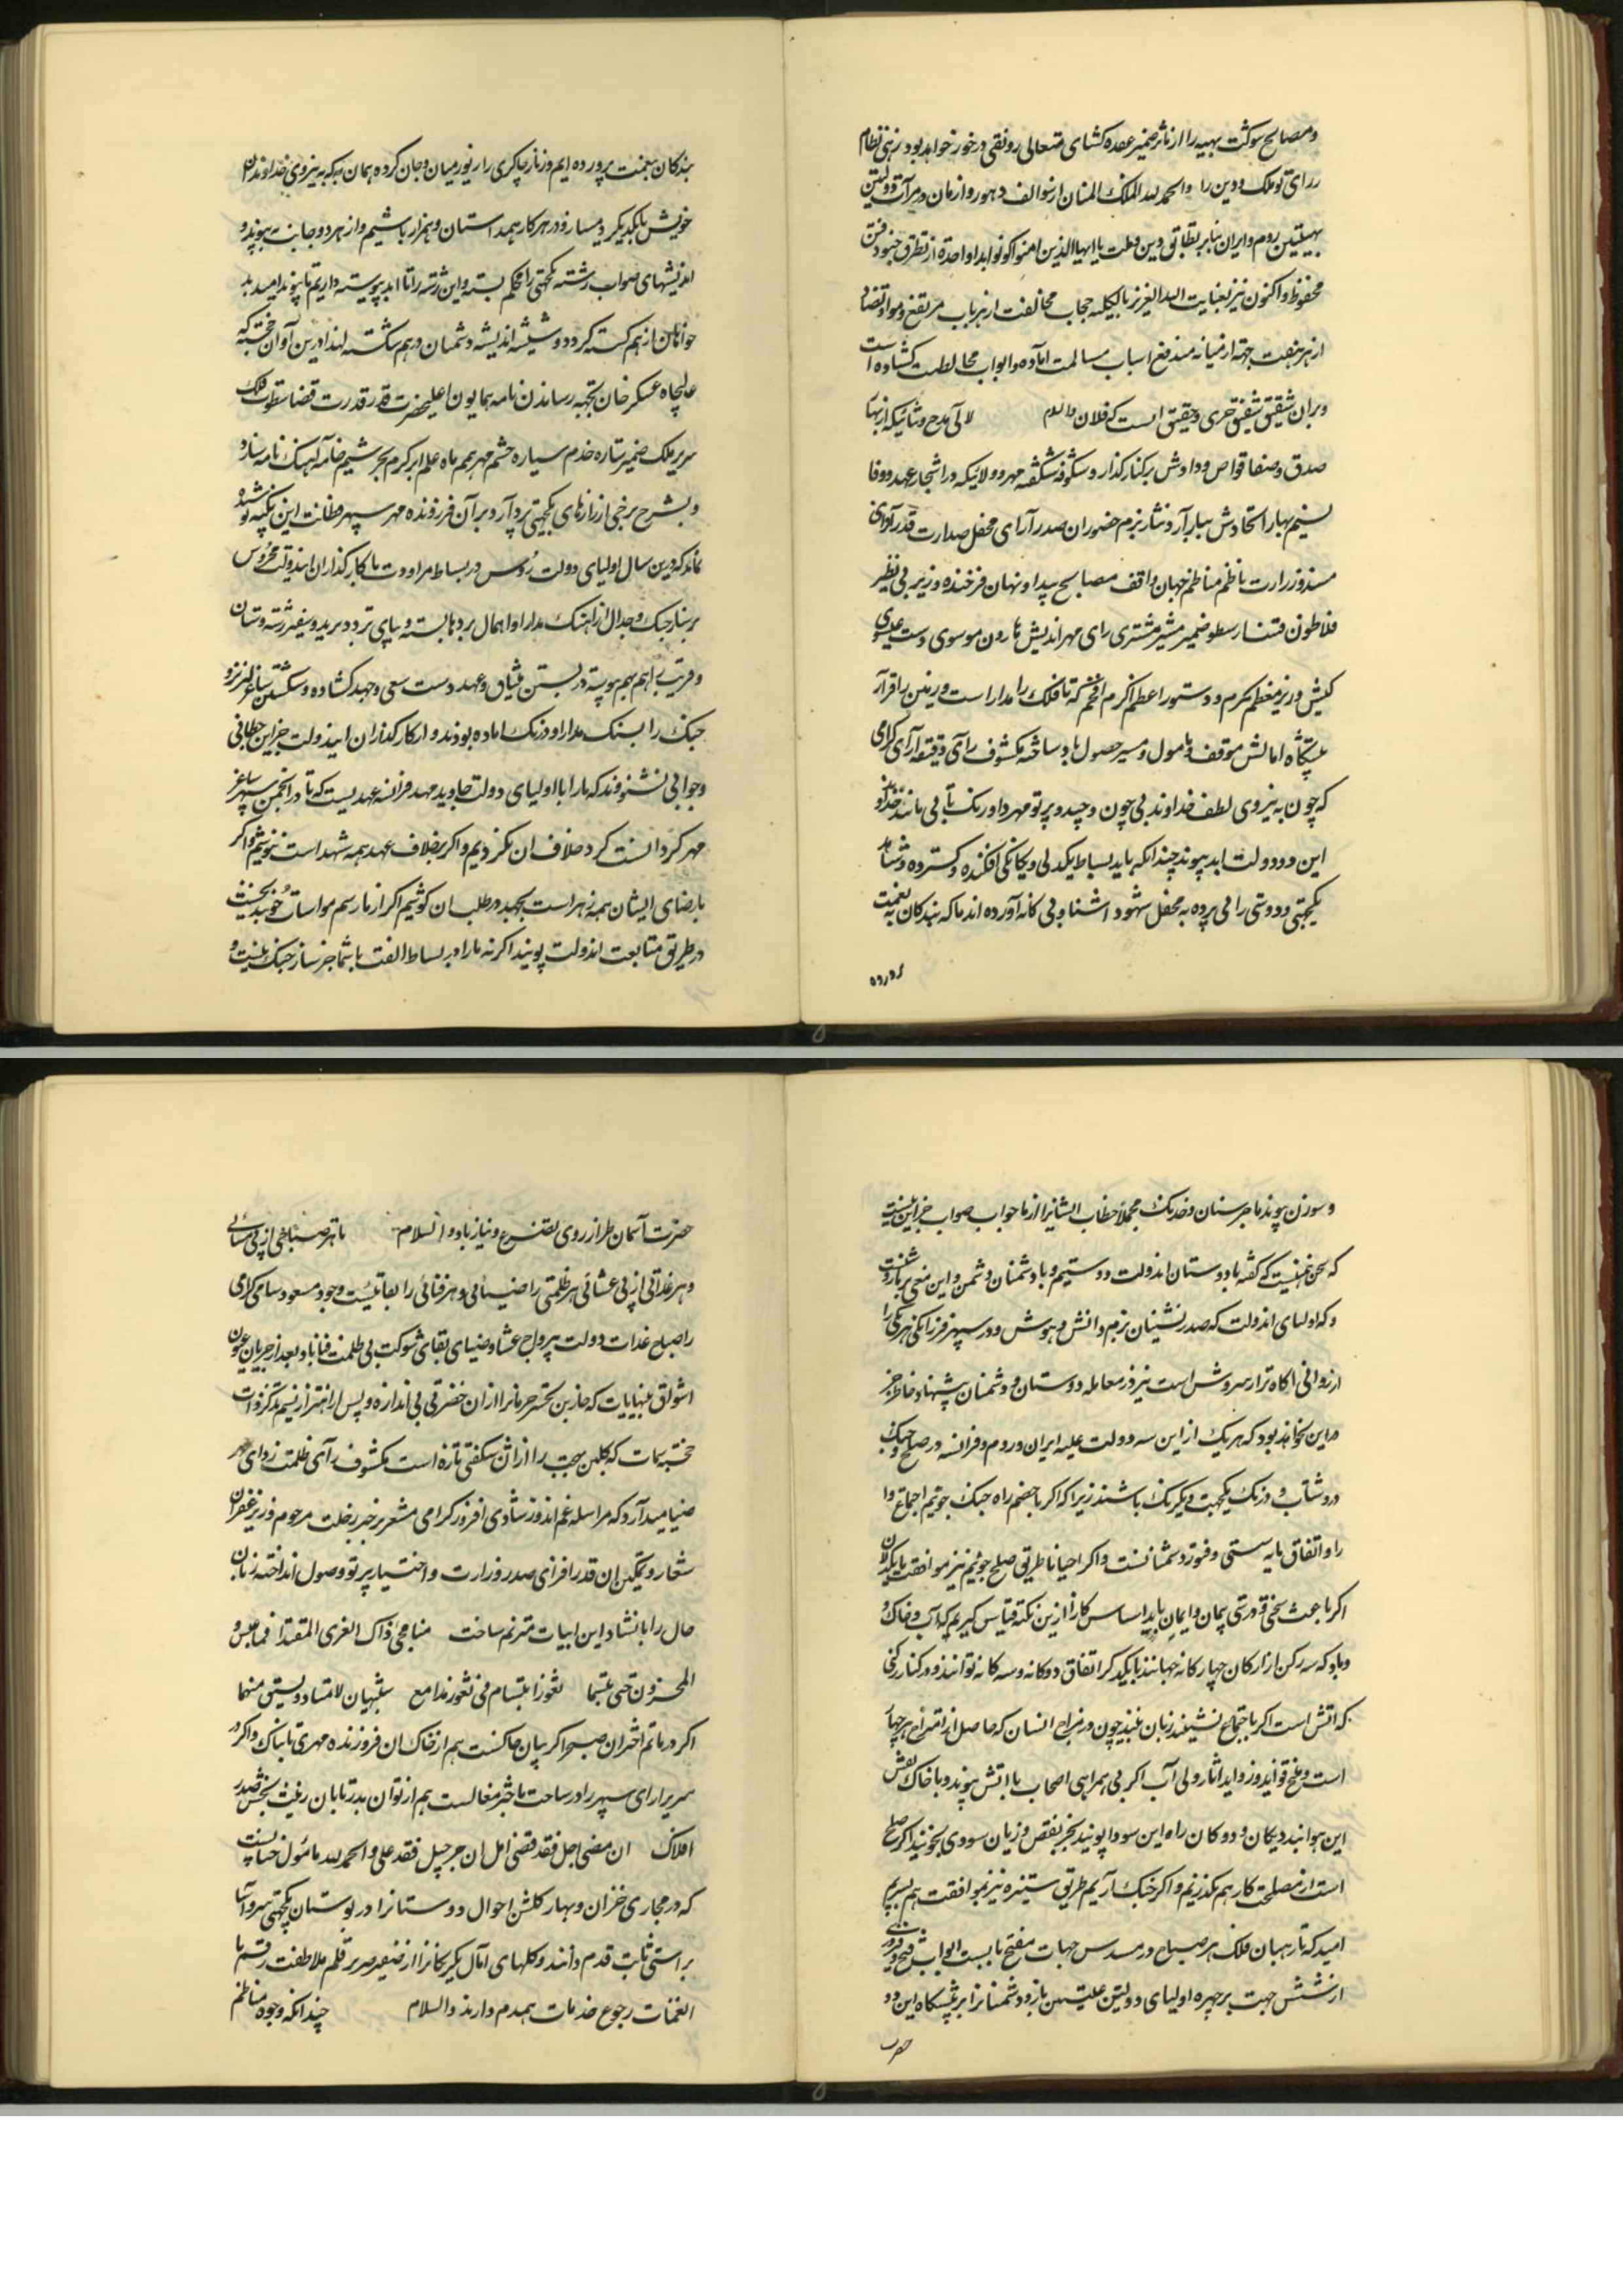 و مصالح شوکت بهیه را از تاثر ضمیر عقده کشای متعالی رونقی درخور خواهد بود زهی نظام
رای تو ملک و دین را والحمد لله الملک المنان از سوالف دهور و ازمان در مرآت دولتین
بهیتین روم و ایران بنابر تطابق دین و ملت یا ایها الذین امنوا کونوا ابدا واحدة از تطرق جنود فتن
محفوظ و اکنون نیز بعنایت الله العزیز بالکلیه حجاب مخالفت از هر باب مرتفع و مواد تضاد
از هر جهت جهة از میانه مندفع اسباب مسالمت آماده و ابواب مخالطت کشاده است
و بر ان شقیق شفیق حری و حقیق است که فلان والسلام لآلی مدح و ثنائیکه از بهای
صدق و صفا قواص ودادش بر کنار گذارد و شکوفه شکفته مهر و ولائیکه در اشجار عهد و وفا
نسیم بهار اتحادش ببار آرد نثار بزم حضور ان صدر آرای محفل صدارت قدر آزای
مسند وزرارت ناظم مناظم جهان واقف مصالح پیدا و نهان فرخنده وزیر بی نظیر
فلاطون فتن ارسطو ضمیر مشیر مشتری رای مهر اندیش هارون موسوی دست عیسوی
کیش وزیر معظم مکرم و دستور اعظم اکرم افخم که تا فلک را مدار است و زمین را قرار
پیشگاه امالش موقف مامول و مسیر حصول باد ساخته مکشوف رآی دقیقه آرای گرامی
که چون به نیروی لطف خداوند بی چون و چند و پرتو مهر داورنک تابی مانند خداوند
این دو دولت ابد پیوند چندانکه باید بساط یکدلی و یکانکی افکنده و کسترده و شاهد
یکجهتی و دوستی را بی پرده به محفل شهود آشنا و بی کانه آورده اند ما که بندکان به نعمت
پرورده
بندکان بنعمت پرورده ایم و زنار چاکری را زیور میان و جان کرده همان به که به نیروی خداوندان
خویش با یکدیکر دمساز و در هر کار همداستان و همراز باشیم و از هر دو جانب به پیوند
اندیشهای صواب رشته یکجهتی را محکم بسته و این رشته را تا ابد پیوسته داریم تا پیوند امید بد
خواهان از هم کسسته کردد و شیشه اندیشه دشمنان در هم شکسته لهذا درین آوان خجسته که
عالیجاه عسکر خان بجهة رساندن نامه همایون اعلیحضرت قدر قدرت قضا سطوت فلک
سریر ملک ضمیر ستاره خدم سیاره حشم مهر همم ماه علم ابر کرم بحر شیم خامه آهنک نامه ساز و
و بشرح برخی از رازهای یکجهتی پردازد بر آن فروزنده مهر سپهر فطانت این نکته پوشیده
نماند که درین سال اولیای دولت روس در بساط مراودت با کارگذاران ایندولت محروس
بر ساز جنک و جدال از اهنک مدارا و اهمال پردها بسته و بپای تردد برید و سفیر رشته دوستان
و قریب را هم بهم پیوسته در بستن میثاق و عهد دست سعی و جهد کشاده و شکستن ساغر لبریز
جنک را بسنک مدارا و درنک اماده بودند و از کارگذاران ایندولت جز این خطابی
و جوابی نشنوفند که ما را با اولیای دولت جاوید مهد فرانسه عهدیست که تا در انجمن سپهر ساغر
مهر کردانست کرد خلاف ان نکردیم و اکر بر خلاف عهد همه شهد است ننوشیم و اکر
با رضای ایشان همه زهر است بجهد در طلب ان کوشیم اکر از ما رسم مواسات خوئید نخست
در طریق متابعت اندولت پوئید اکرنه ما را در بساط الفت با شما جز ساز جنک نیست و
و سوزن پیوند ما جز سنان و خدنک مجملا خطاب ایشانرا از ما جواب صواب جز این نیست
که سخن همینست که کفته با دوستان اندولت دوستیم و با دشمنان دشمن و این معنی بر ما روشنست
که اولیای اندولت که صدر نشینان بزم دانش و هوش و در سپهر فرزانکی هر یکی را
ارزوانی اکاه تر از سروش است نیز در معامله دوستان و دشمنان پیشنهاد خاطر جز
این نخواهد بود که هر یک از این سه دولت علیه ایران و روم و فرانسه در صلح و جنک
در شتاب و درنک یکجهت و یکرنک باشند زیرا که اکر با خصم راه جنک جوئیم اجتماع ما
را و اتفاق مایه سستی و فتور دشمنانست و اکر احیانا طریق صلح جوئیم نیز موافقت یکدلان
اکر باعث سختی و درستی پیمان و ایمان باید اساس کار ما از این نکته قیاس کیریم که آب و خاک و
و باد که سه رکن از ارکان چهارکانه جهانند با یکدکر اتفاق دوکانه و سه کانه توانند و در کنار رکنی
که اتش است اکر باجتماع نشینند زبان نبیند چون در مزاج انسان که حاصل از امتزاج هر چهار
است و منتج فواید و زواید اثار ولی آب اکر بی همراهی اصحاب با اتش پیوند و با خاک نقش
این هوا بندد یکان و دوکان راه این سودا پویند بجز نقص و زیان سودی نجویند اکر صلح
است از مصلحت کار هم نکذریم و اکر جنک آریم طریق ستیزه نیز بموافقت هم سپریم
امید که تا رهبان فلک هر صباح در مسدس جهات مفتح باب است ابواب فتح و فیروزی
از شش جهت بر چهره اولیای دولتین علیتین باز و دشمنانرا بر پیشگاه این دو
حضرت
حضرت آسمان طراز روی تضرع و نیاز باد والسلام تا هر صباحی از پی مسائی
و هر غداتی از پی عشائی هر ظلمتی را ضیائی و هر فنائی را بقائیست وجود مسعود سامی گرامی
را صباح غدات دولت بی رواح عشا و ضیای بقای شوکت بی ظلمت فنا باد و بعد از جریان عیون
اشواق بی نهایات که حازین تحسر حرمانرا از ان خضرتی بی اندازه و پس از اهتزاز نسیم تذکر ذات
خجسته سمات که کلبن محبت را از ان شکفتی تازه است مکشوف رآی ظلمت زدای مهر
ضیا میدارد که مراسله غم اندوز شادی افروز گرامی مشعر بر خبر رحلت مرحوم وزیر غفران
شعار و تمکین ان قدر افزای صدر وزارت و اختیار پرتو وصول انداخته زبان
حال را بانشاد این ابیات مترنم ساخت هنا محی ذاک العزی المقتدا فما عبس
المحزون حتی تبسما ثغور ابتسام فی ثغور مدامع شبیهان لا تمتاز و یستبق منهما
اکر در ماتم اختران صبح را کریبان چاکست هم از خاک ان فروزنده مهری تابناک و اکر
سریر ارای سپهر را در ساحت باختر مغالست هم از توان بدر تابان زینت بخش صدر
افلاک ان مضی اجل فقد قضی امل ان جر جیل فقد علی والحمد لله مامول خاتمیت
که در مجاری خزان و بهار کلشن احوال دوستانرا در بوستان یکجهتی سرو آسا
براستی ثابت قدم دانند و کلهای آمال یکرنکانرا از صفیر صریر قلم ملاطفت رقم با
النغمات رجوع خدمات همیدم دارند والسلام چندانکه وجوه مناظم